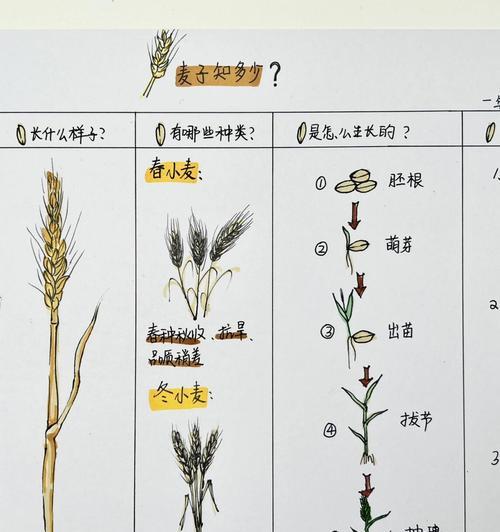 麦子知多少?
长什么样子?
有哪些种类?
春小麦:
春种秋收、抗旱、
品质稍差
冬小麦:
是怎么生长的?
① 胚根
② 萌芽
③ 出苗
④ 拔节
1.
2
3